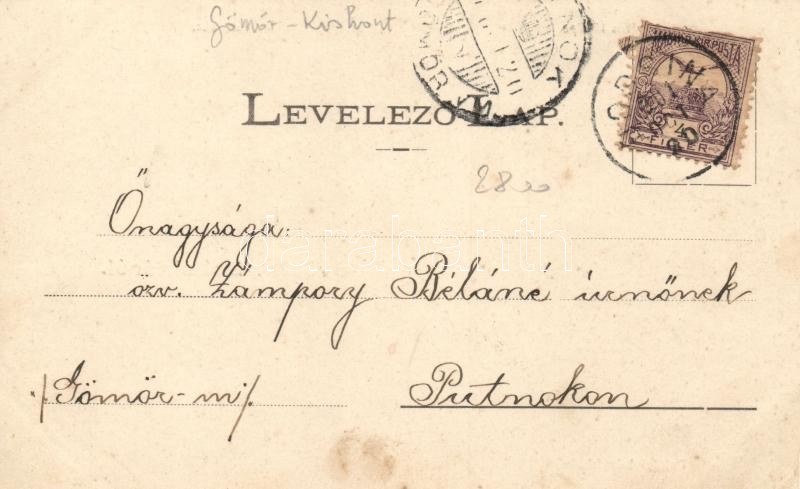 Gömör-Kishont
MAGYAR KIR. POSTA
FILLÉR
LEVELEZŐ-LAP.
28 00
Őnagysága:
darabanth
özv. Zámpory Béláné úrnőnek
/Gömör-m/.
Putnokon